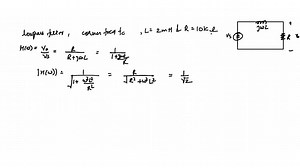 lowpass filter, corner freq fc, L = 2mH & R = 10KΩ
H(ω) = Vo/Vs = R/(R+jωL) = 1/(1+jωL/R)
|H(ω)| = 1/√(1+ω²L²/R²) = R/√(R²+ω²L²) = 1/√2
2mH
jωL
Vs
R